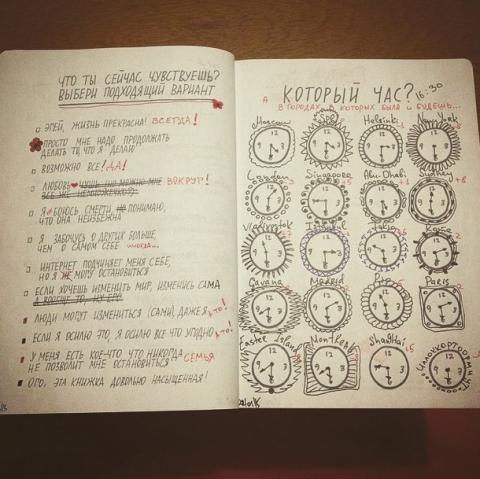 ЧТО ТЫ СЕЙЧАС ЧУВСТВУЕШЬ?
ВЫБЕРИ ПОДХОДЯЩИЙ ВАРИАНТ
ЭГЕЙ, ЖИЗНЬ ПРЕКРАСНА! ВСЕГДА!
ПРОСТО МНЕ НАДО ПРОДОЛЖАТЬ
ДЕЛАТЬ ТО, ЧТО Я ДЕЛАЮ
ВОЗМОЖНО ВСЕ! ДА!
ЛЮБОВЬ ❤ МОЖНО МНЕ ВОКРУГ!
ВСЕ ЖЕ НЕМНОЖЕЧКО?
Я БОЮСЬ СМЕРТИ, НО ПОНИМАЮ,
ЧТО ОНА НЕИЗБЕЖНА
Я ЗАБОЧУСЬ О ДРУГИХ БОЛЬШЕ,
ЧЕМ О САМОМ СЕБЕ иногда...
ИНТЕРНЕТ ПОДЧИНЯЕТ МЕНЯ СЕБЕ,
НО Я МОГУ ОСТАНОВИТЬСЯ
ЕСЛИ ХОЧЕШЬ ИЗМЕНИТЬ МИР, ИЗМЕНИСЬ САМА
ЛЮДИ МОГУТ ИЗМЕНИТЬСЯ (САМИ), ДАЖЕ Я это!
ЕСЛИ Я ОСИЛЮ ЭТО, Я ОСИЛЮ ВСЕ ЧТО УГОДНО это!
У МЕНЯ ЕСТЬ КОЕ-ЧТО ЧТО НИКОГДА
НЕ ПОЗВОЛИТ МНЕ ОСТАНОВИТЬСЯ СЕМЬЯ
ОГО, ЭТА КНИЖКА ДОВОЛЬНО НАСЫЩЕННАЯ!
А КОТОРЫЙ ЧАС? 16:30
В ГОРОДАХ, В КОТОРЫХ БЫЛА И БУДЕШЬ...
Moscow SPb Helsinki New York
London Singapore Abu Dhabi Sydney
Vladivostok Istanbul Tokyo Rome
Gavana Madrid Paris
Easter Island Monterey ShangHai